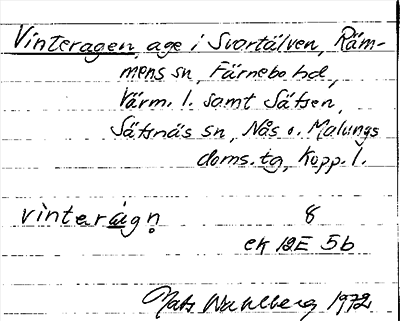 Vinteragen, age i Svartälven, Räm-
mens sn, Färnebo hd,
Värm. l. samt Sätsen,
Säfsnäs sn, Nås o. Malungs
doms. tg, Kopp. l.
vinterågn 8
ek 12E 5b
Mats Wahlberg 1972